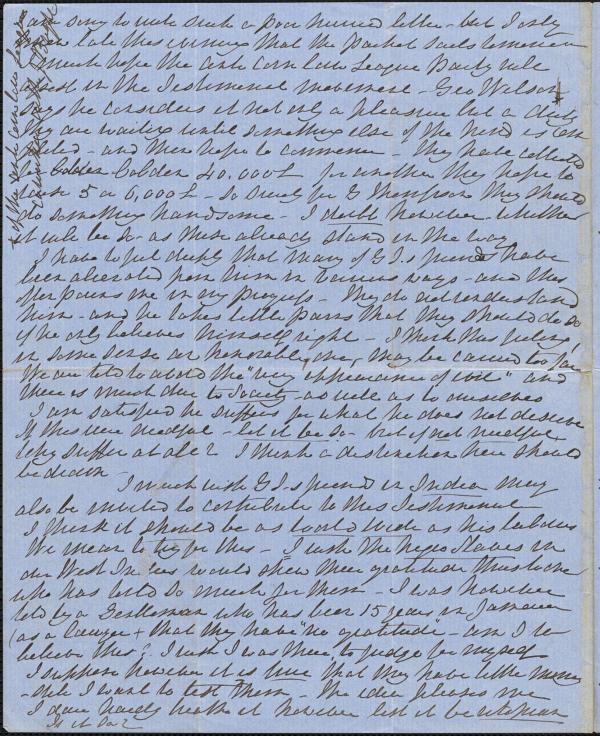 I am sorry to write such a poor hurried letter - but I only
knew late this evening that the packet sails tomorrow
I much hope the anti corn law League party will
assist in the Testimonial movement - Geo Wilson
says he considers it not only a pleasure but a duty
they are waiting until something else of the kind is com
pleted - and then hope to commence - They have collected
for Cobden 40,000£ for another they hope to
5 or 6,000£ - so surely for G Thompson they should
do something handsome - I doubt however - whether
it will be so - as these already stand in the way
I have to feel deeply that many of G T.s friends have
been alienated from him in various ways - and this
often pains me in my progress - They do not understand
him - and he takes little pains that they should do so
if he only believes himself right - I think this feeling
in some sense an honorable one, may be carried too far
We are told to avoid the "very appearance of evil" and
there is much due to Society - as well as to ourselves
I am satisfied he suffers for what he does not deserve
If this were needful - let it be so - but if not needful
why suffer at all? I think a distinction here should
be drawn -
I much wish G T-s friends in India may
also be invited to contribute to this Testimonial
I think it should be as world wide as his labors
We mean to try for this - I wish the Negro Slaves in
our West Indies would shew their gratitude towards one
who has told so much for them - I was however
told by a Gentleman who has been 15 years in Jamaica
(as a lawyer + that they have "no gratitude" - am I to
believe this? I wish I was there to judge for myself
I suppose however it is true that they have little money
- still I want to test them - The idea pleases me
I dare hardly breathe it however lest it be utopian
Is it so?
x of the anti corn law League